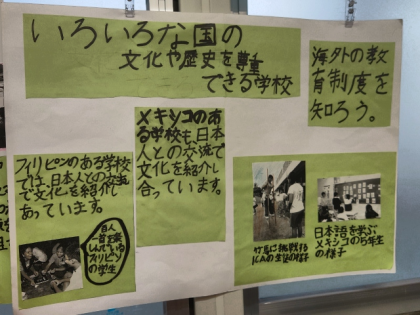 いろいろな国の
文化や歴史を尊重
できる学校
海外の教
育制度を
知ろう。
メキシコのあ
る学校も、日本
人との交流で
文化を紹介し
合っています。
フィリピンのある学校
では、日本人との交流
で文化を紹介し
あっています。
百人
一首を楽
しんでいる
フィリピン
の学生
竹馬に挑戦する
の生徒の様子
日本語を学ぶ
メキシコの5年生
の様子